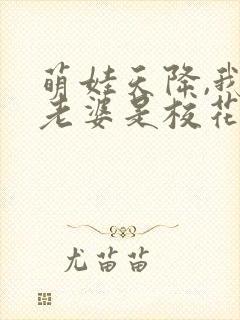 萌娃天降,我
老婆是校花
尤苗苗